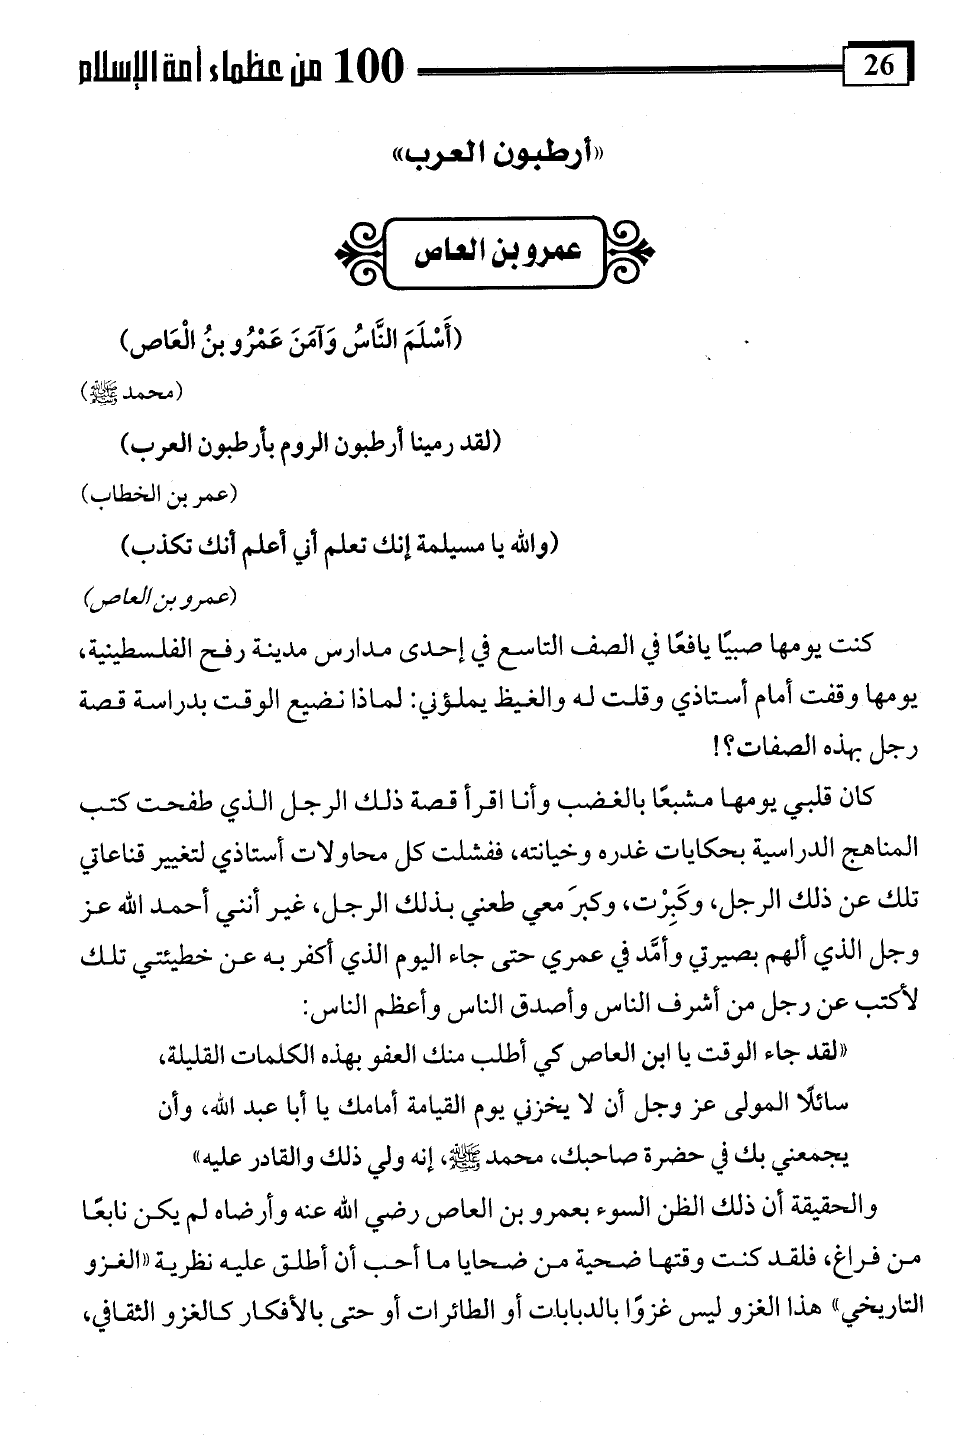 26
100 من عظماء أمة الإسلام
«أرطبون العرب»
عمرو بن العاص
(أَسْلَمَ النَّاسُ وَآمَنَ عَمْرُو بنُ الْعَاص)
(محمد ﷺ)
(لقد رمينا أرطبون الروم بأرطبون العرب)
(عمر بن الخطاب)
(والله يا مسيلمة إنك تعلم أني أعلم أنك تكذب)
(عمرو بن العاص)
كنت يومها صبيًا يافعًا في الصف التاسع في إحدى مدارس مدينة رفح الفلسطينية،
يومها وقفت أمام أستاذي وقلت له والغيظ يملؤني: لماذا نضيع الوقت بدراسة قصة
رجل بهذه الصفات؟!
كان قلبي يومها مشبعًا بالغضب وأنا اقرأ قصة ذلك الرجل الذي طفحت كتب
المناهج الدراسية بحكايات غدره وخيانته، ففشلت كل محاولات أستاذي لتغيير قناعاتي
تلك عن ذلك الرجل، وكَبِرْت، وكبرَ معي طعني بذلك الرجل، غير أنني أحمد الله عز
وجل الذي ألهم بصيرتي وأمَّد في عمري حتى جاء اليوم الذي أكفر به عن خطيئتي تلك
لأكتب عن رجل من أشرف الناس وأصدق الناس وأعظم الناس:
«لقد جاء الوقت يا ابن العاص كي أطلب منك العفو بهذه الكلمات القليلة،
سائلًا المولى عز وجل أن لا يخزني يوم القيامة أمامك يا أبا عبد الله، وأن
يجمعني بك في حضرة صاحبك، محمد ﷺ، إنه ولي ذلك والقادر عليه»
والحقيقة أن ذلك الظن السوء بعمرو بن العاص رضي الله عنه وأرضاه لم يكن نابعًا
من فراغ، فلقد كنت وقتها ضحية من ضحايا ما أحب أن أطلق عليه نظرية «الغزو
التاريخي» هذا الغزو ليس غزوًا بالدبابات أو الطائرات أو حتى بالأفكار كالغزو الثقافي،